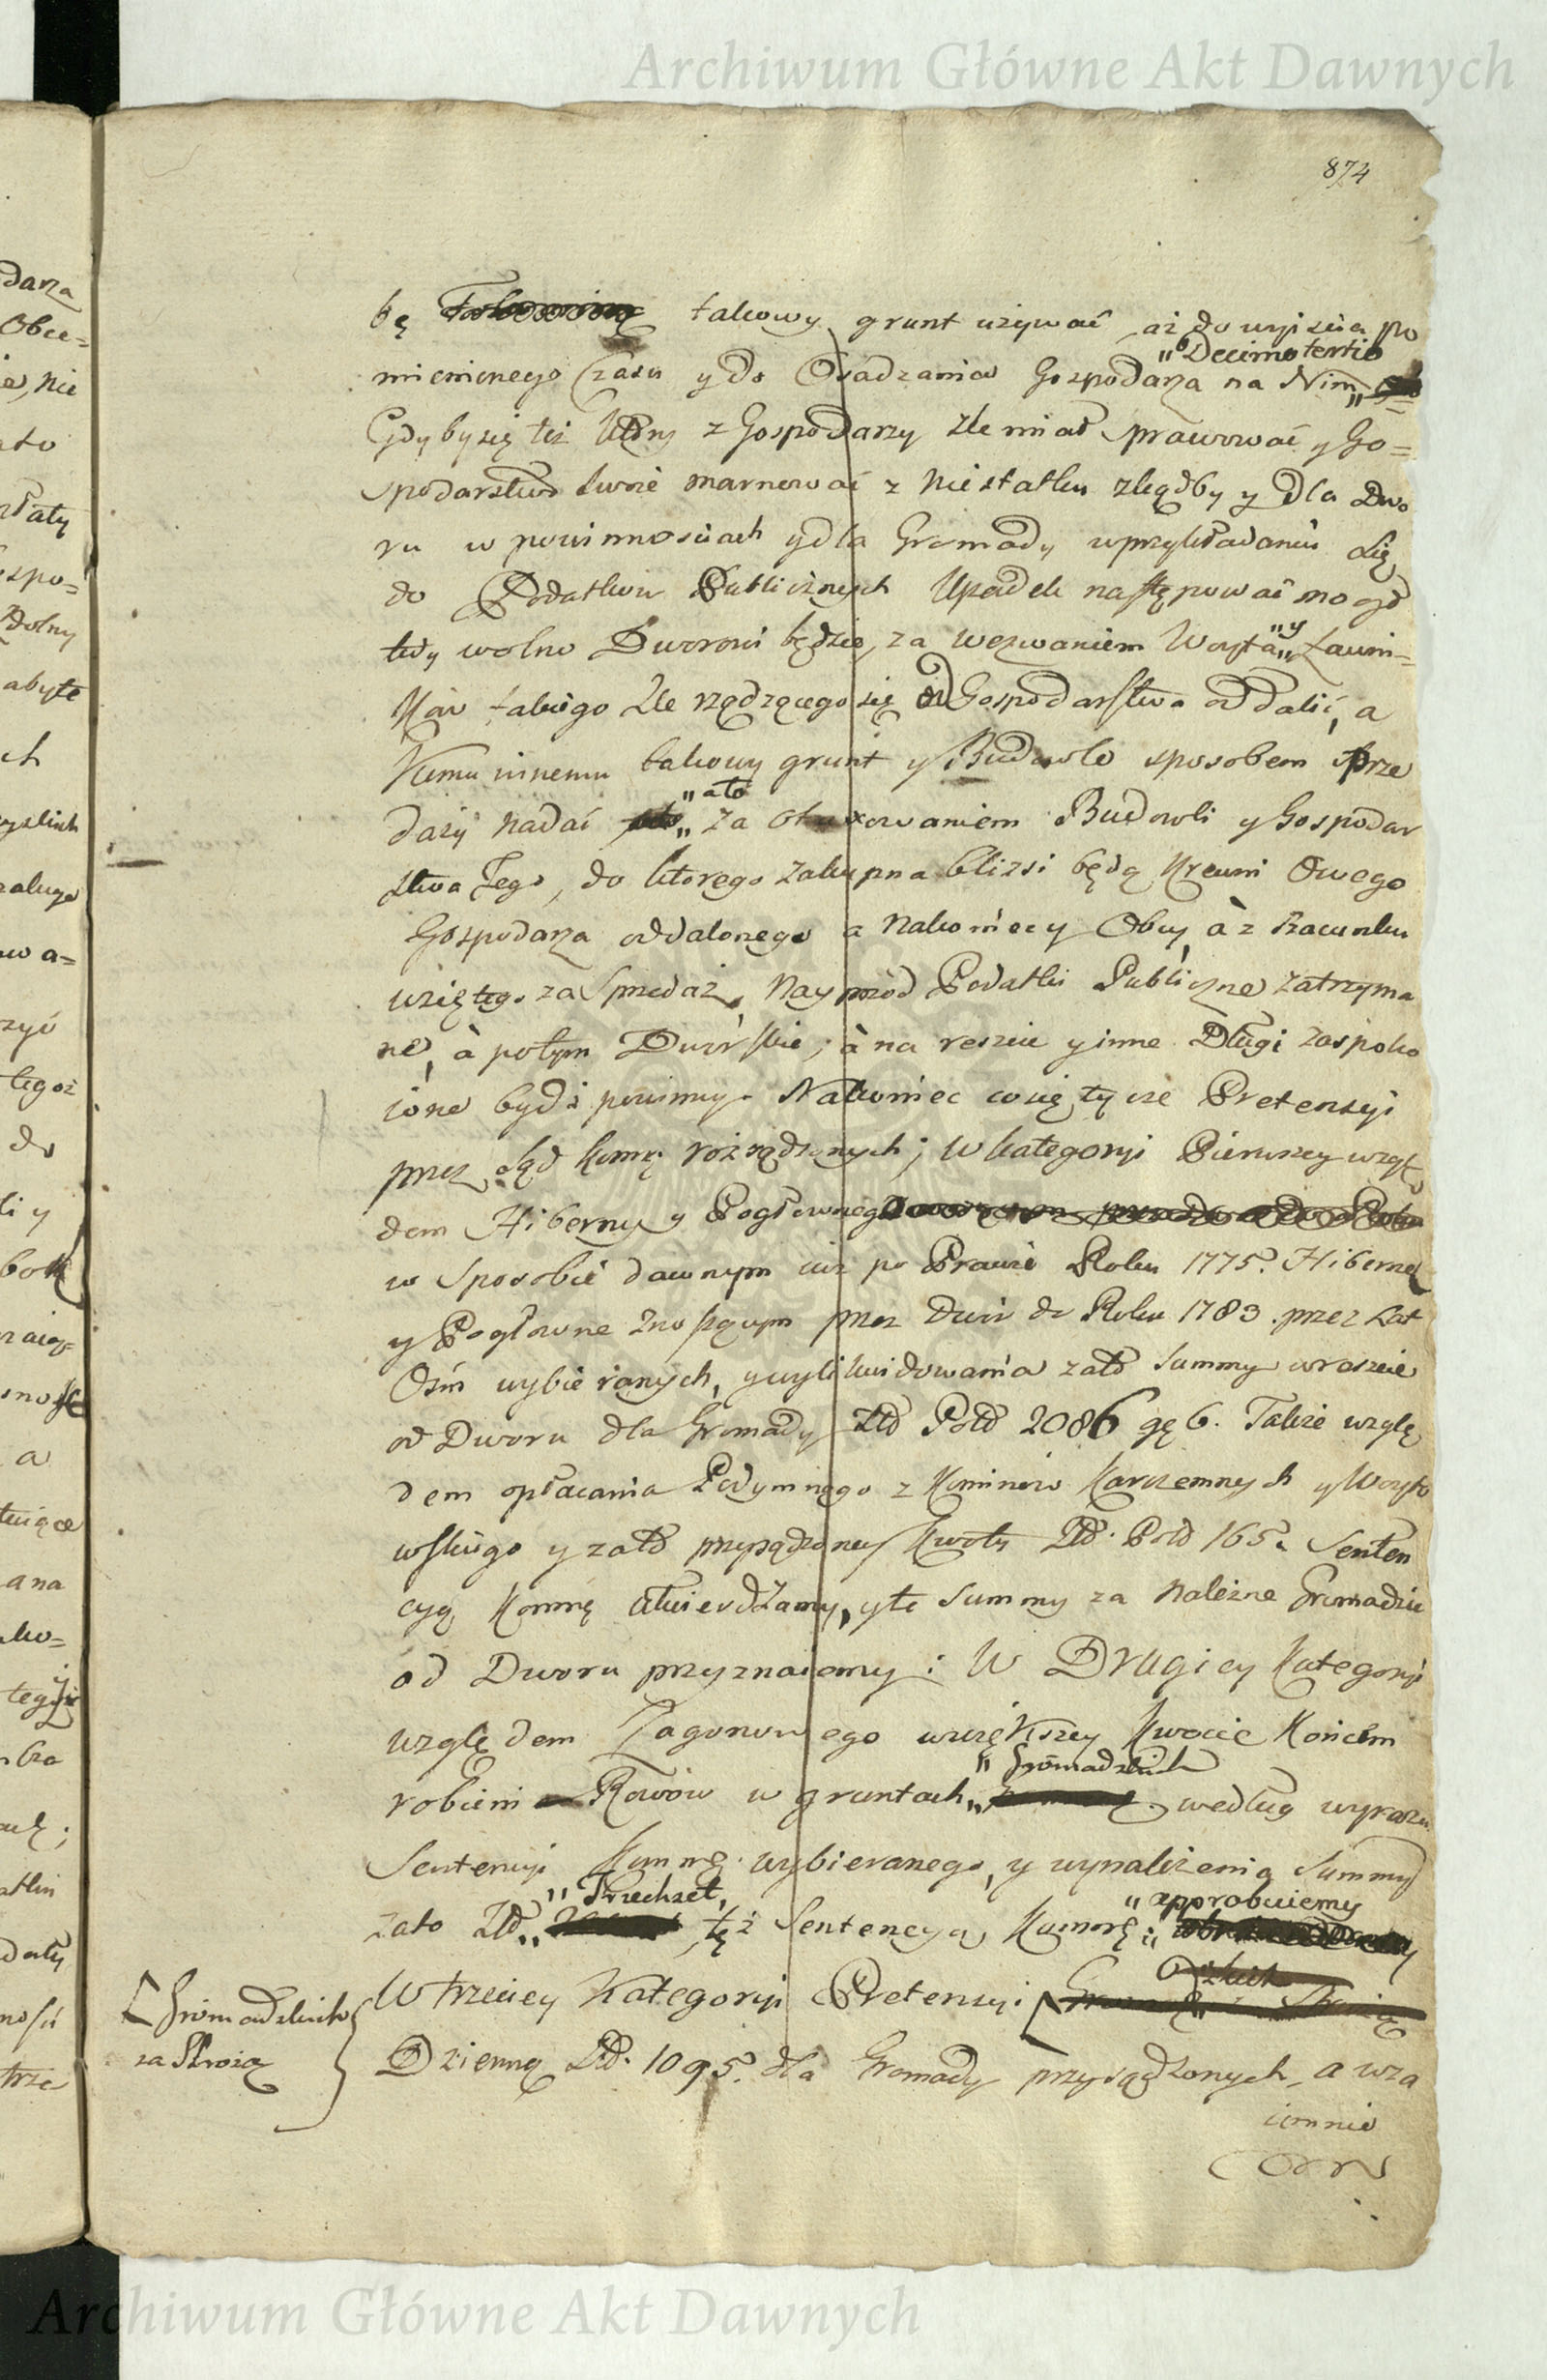 Archiwum Główne Akt Dawnych
874
bę takowy grunt używać, aż do wyiścia po
mienionego Czasu y do Osadzania Gospodarza na Nim „ "Decimotertio
Gdyby się też który z Gospodarzy źle miał sprawować y Go=
spodarstwo swoie marnować z niestatku zkądby y dla Dwo
ru w powinnosciach y dla Gromady w przykładaniu się
do Podatków Publicznych Upadek następować mogł
tedy wolno Dworowi będzie, za wezwaniem Woyta „y„ Ławni=
Ków takiego źle rządzącego się od Gospodarstwa oddalić, a
Komu innemu takowy grunt y Budowle sposobem Prze
dazy nadać „ato„ za otaxowaniem Budowli y Gospodar
stwa Jego, do ktorego zakupna blizsi będą Krewni Owego
Gospodarza oddalonego a nakoniec y Obcy, à z Szacunku
wziętego za Sprzedaż, Nayprzod Podatki Publiczne zatrzyma
ne, à potym Dworskie; à na reszcie y inne Długi zaspoko
ione bydź powinny. Nakoniec co się tycze Pretensyi
przez Sąd Komnę rozsądzonych; w kategoryi Pierwszey wzglę
dem Hiberny y Pogłownego
w Sposobie dawnym iuż po Prawie Roku 1775. Hibernę
y Pogłowne znoszącym przez Dwór do Roku 1783. przez Lat
Ośm wybieranych, y wylikwidowania zato Summy w reszcie
od Dworu dla Gromady Złł Poll 2086 gę 6. Także wzglę
dem opłacania Podymnego z Kominow Karczemnych y Woyto
wskiego y zato przysądzoney Kwoty Złł. Poll 165. Senten
cyą Komnę utwierdzamy, y te Summy za należne Gromadzie
od Dworu przyznaiemy: W Drugiey Kategoryi
względem Zagonowego w więKszey Kwocie Końcem
robieni Rowów w gruntach „ "Gromadzkich według wyrazu
Sentencyi Komnę. wybieranego, y wynaleźenia Summy
zato Złł. „ "Trzechset, tęż Sentencyą Komnę: „ "approbuiemy
W trzeciey Kategoryi Pretensyi [
[Gromadzkich
za Strożą
Dzienną Złł. 1095. dla Gromady przysądzonych, a wza
iemnie
Archiwum Główne Akt Dawnych